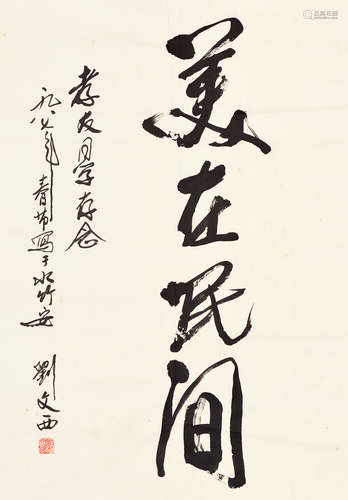 美在民间
孝友同学存念
一九八七年春节写于水竹安
刘文西